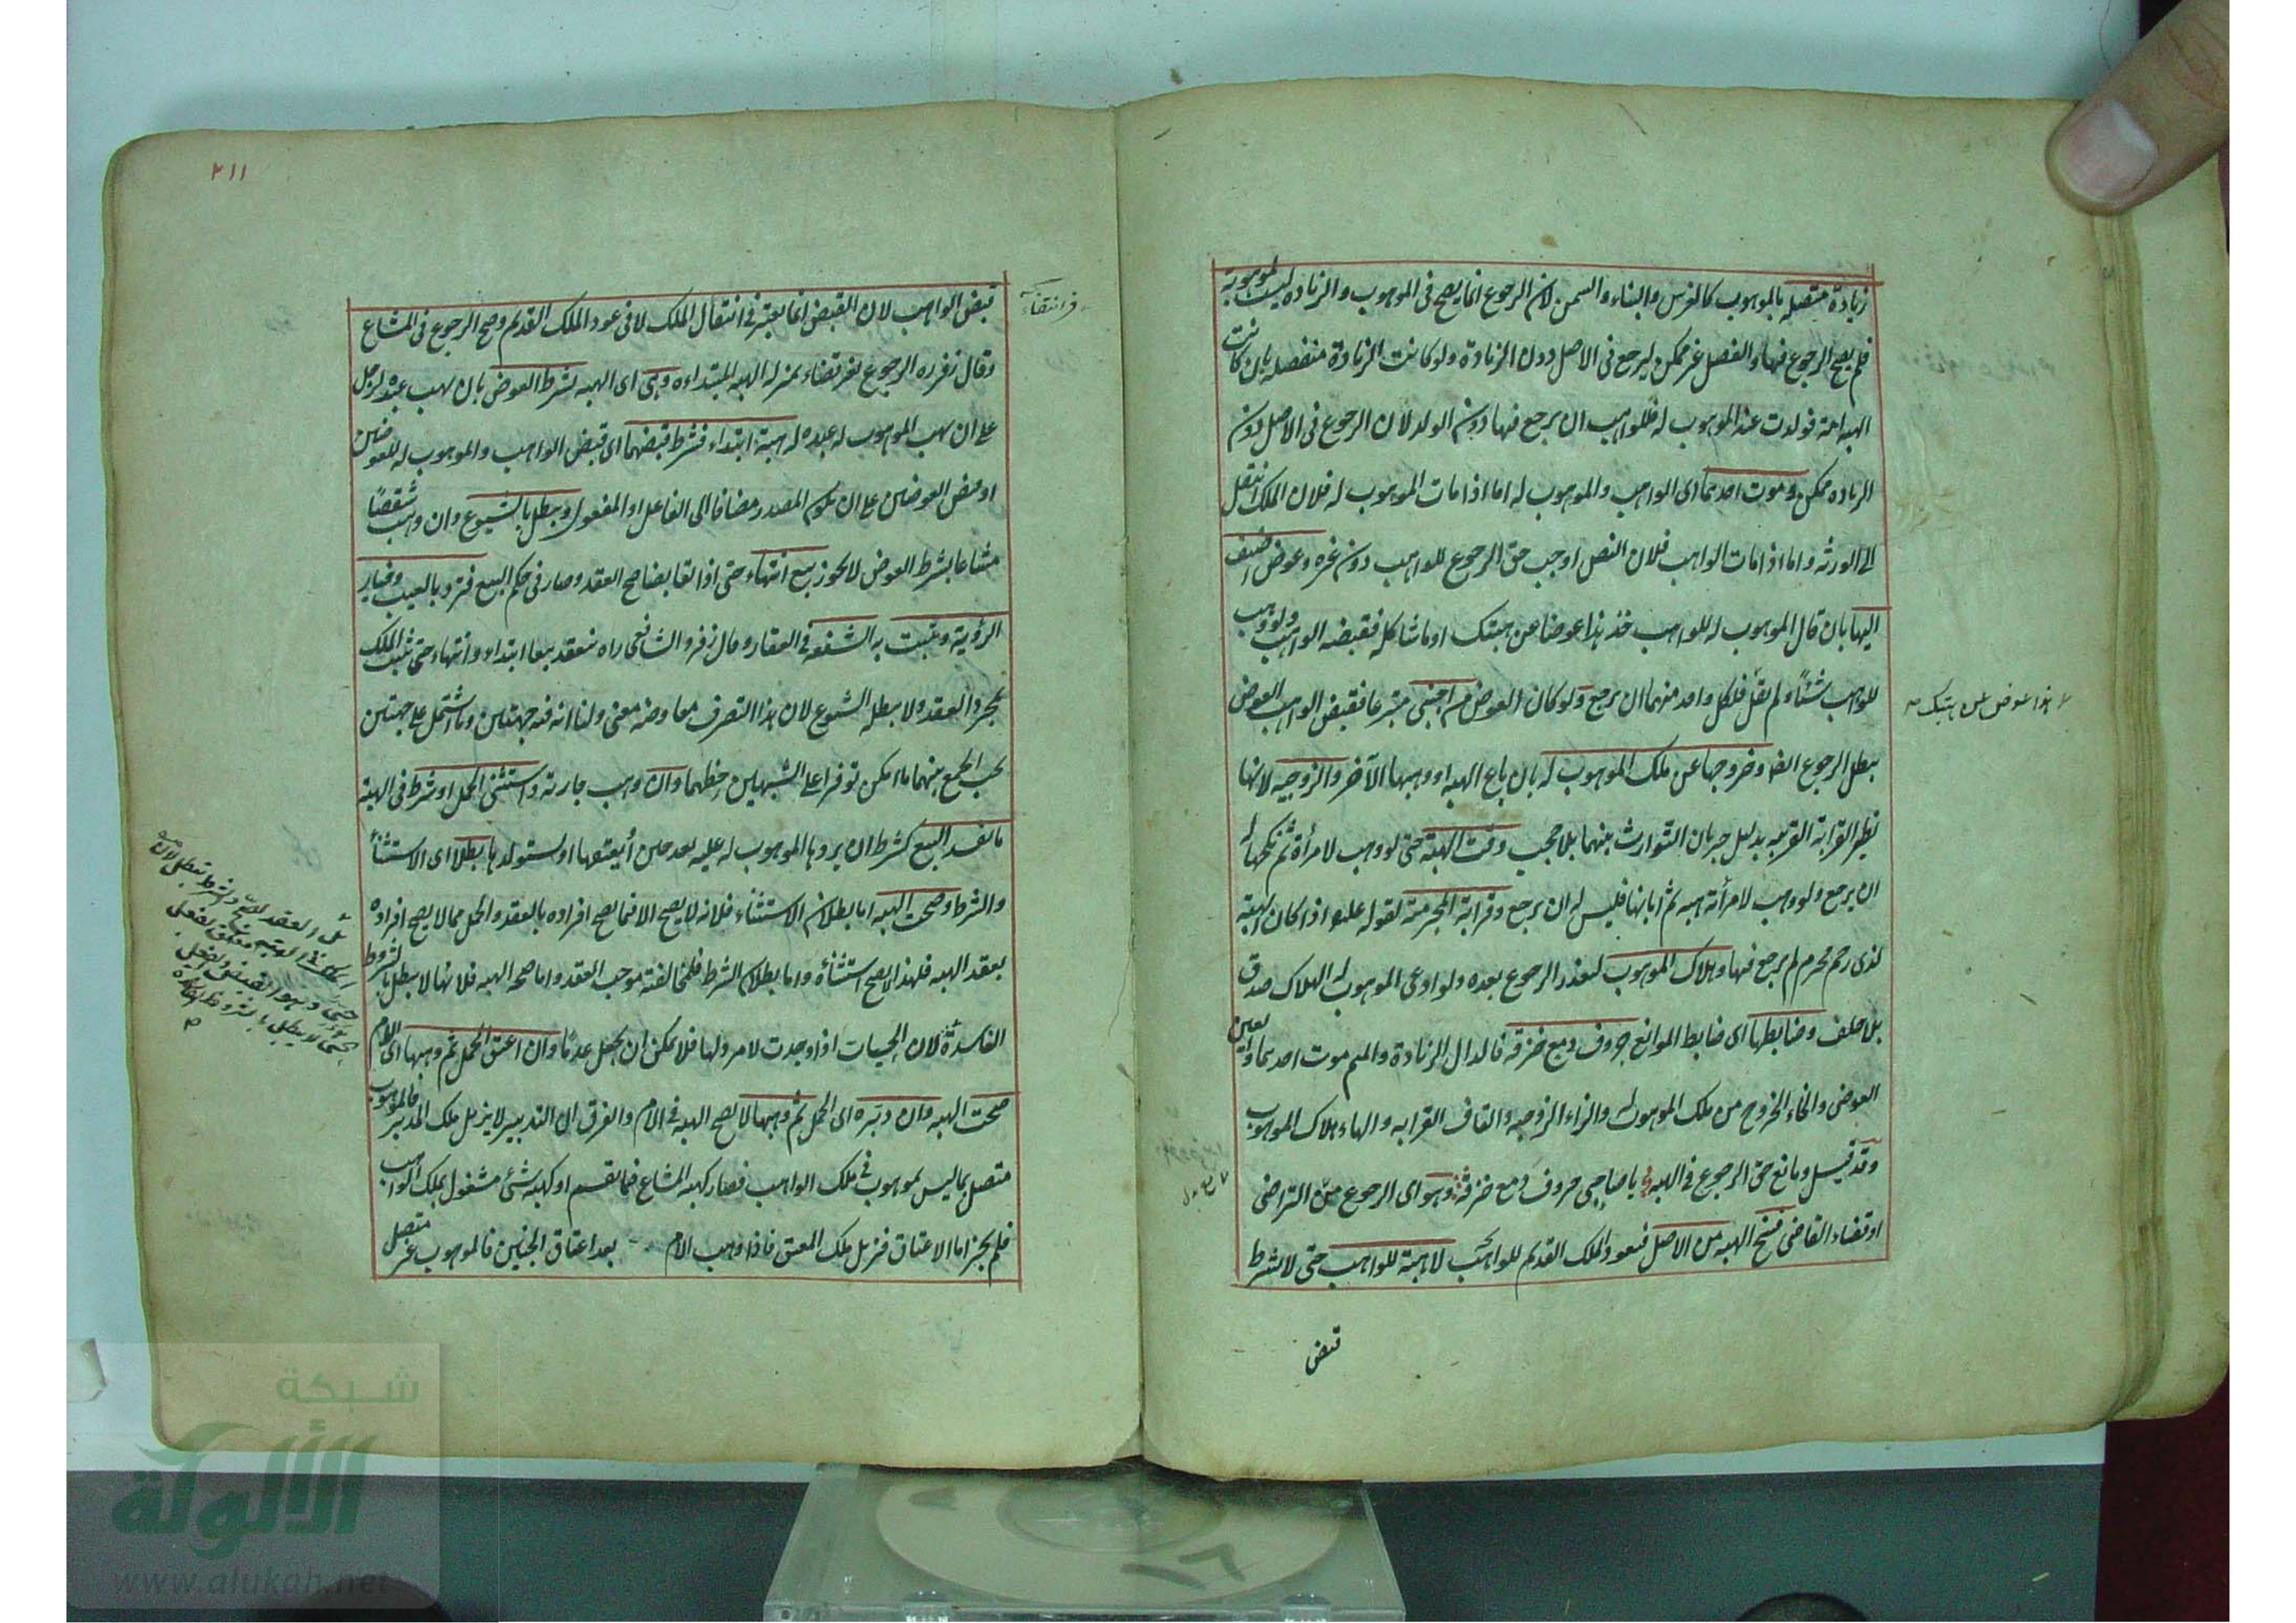 زيادة متصلة بالموهوب كالغرس والبناء والسمن لان الرجوع انما يصح فى الموهوب والزيادة ليست بموهوبة
فلم يصح الرجوع فيها والفصل غير ممكن ليرجع فى الاصل دون الزيادة ولو كانت الزيادة منفصلة بان كانت
الهبة امة فولدت عند الموهوب له فللواهب ان يرجع فيها دون الولد لان الرجوع فى الاصل دون
الزيادة ممكن وموت احدهما اى الواهب والموهوب له اما اذا مات الموهوب له فلان الملك انتقل
الى الورثة واما اذا مات الواهب فلان النص اوجب حق الرجوع للواهب دون غيره وعوض اضيف
اليها بان قال الموهوب له للواهب خذ هذا عوضا عن هبتك او ما شاكله فقبضه الواهب ولو وهب
للواهب شيئا ولم يقل فلكل واحد منهما ان يرجع ولو كان العوض من اجنبى متبرعا فقبض الواهب العوض
يبطل الرجوع ايضا وخروجها عن ملك الموهوب له بان باع الهبة او وهبها لآخر والزوجية لانها
نظير القرابة القريبة بدليل جريان التوارث بينهما بلا حجب وقت الهبة حتى لو وهب لامرأة ثم نكحها له
ان يرجع ولو وهب لامرأته هبة ثم ابانها فليس له ان يرجع وقرابة المحرمية لقوله عليه اذا كان الهبة
لذى رحم محرم لم يرجع فيها وهلاك الموهوب لتعذر الرجوع بعده ولو ادعى الموهوب له الهلاك صدق
بلا حلف وضابطها اى ضابط الموانع حروف دمع خزقه فالدال الزيادة والميم موت احدهما والعين
العوض والخاء الخروج من ملك الموهوب له والزاء الزوجية والقاف القرابة والهاء هلاك الموهوب
وقد قيل ومانع حق الرجوع فى الهبة يا صاحبى حروف دمع خزقه وهو اى الرجوع مع التراضى
او قضاء القاضى فسخ الهبة من الاصل فيعود الملك القديم للواهب لا هبة للواهب حتى لا يشترط
قبض
هذا عوض عن هبتك
٢١١
قبض الواهب لان القبض انما يعتبر فى انتقال الملك لا فى عود الملك القديم وصح الرجوع فى المشاع
وقال زفر ره الرجوع بغير قضاء بمنزلة الهبة المبتداءه وهى اى الهبة بشرط العوض بان يهب عبده لرجل
على ان يهب الموهوب له عبده له هبة ابتداء فشرط قبضهما اى قبض الواهب والموهوب له للعوضين
او قبض العوضين على ان يكون المصدر مضافا الى الفاعل او المفعول ويبطل بالشيوع وان وهب شقصًا
مشاعا بشرط العوض لا يجوز بيع انتهاء حتى اذا تقابضا صح العقد وصار فى حكم البيع فترد بالعيب وخيار
الرؤية وتثبت به الشفعة فى العقار وقال زفر والشافعى راه ينعقد بيعا ابتداء وانتهاء حتى يثبت الملك
بمجرد العقد ولا يبطله الشيوع لان هذا التصرف معاوضة معنى ولنا انه فيه جهتين وما اشتمل على جهتين
يجب الجمع بينهما ما امكن توفيرا على الشبهين حظهما وان وهب جارية واستثنى الحمل او شرط فى الهبة
ما يفسد البيع كشرط ان يردها الموهوب له عليه بعد حين او يعتقها او يستولدها بطلا اى الاستثناء
والشرط وصحت الهبة اما بطلان الاستثناء فلانه لا يصح الا فيما يصح افراده بالعقد والحمل مما لا يصح افراده
بعقد الهبة فلهذا لا يصح استثناؤه واما بطلان الشرط فلمخالفته موجب العقد واما صحة الهبة فلانها لا يبطل بالشروط
الفاسدة لان الحسيات اذا وجدت لا مرد لها فلا يمكن ان يجعل عدمًا وان اعتق الحمل ثم وهبها اى الام
صحت الهبة وان دبّره اى الحمل ثم وهبها لا يصح الهبة فى الام والفرق ان التدبير لا يزيل ملك المدبر فالموهوب
متصل بما ليس بموهوب فى ملك الواهب فصار كهبة المشاع فيما يقسم او كهبة شئ مشغول بملك الواهب
فلم يجز اما الاعتاق فيزيل ملك المعتق فاذا وهب الام بعد اعتاق الجنين فالموهوب غير متصل
شبكة
الألوكة
www.alukah.net